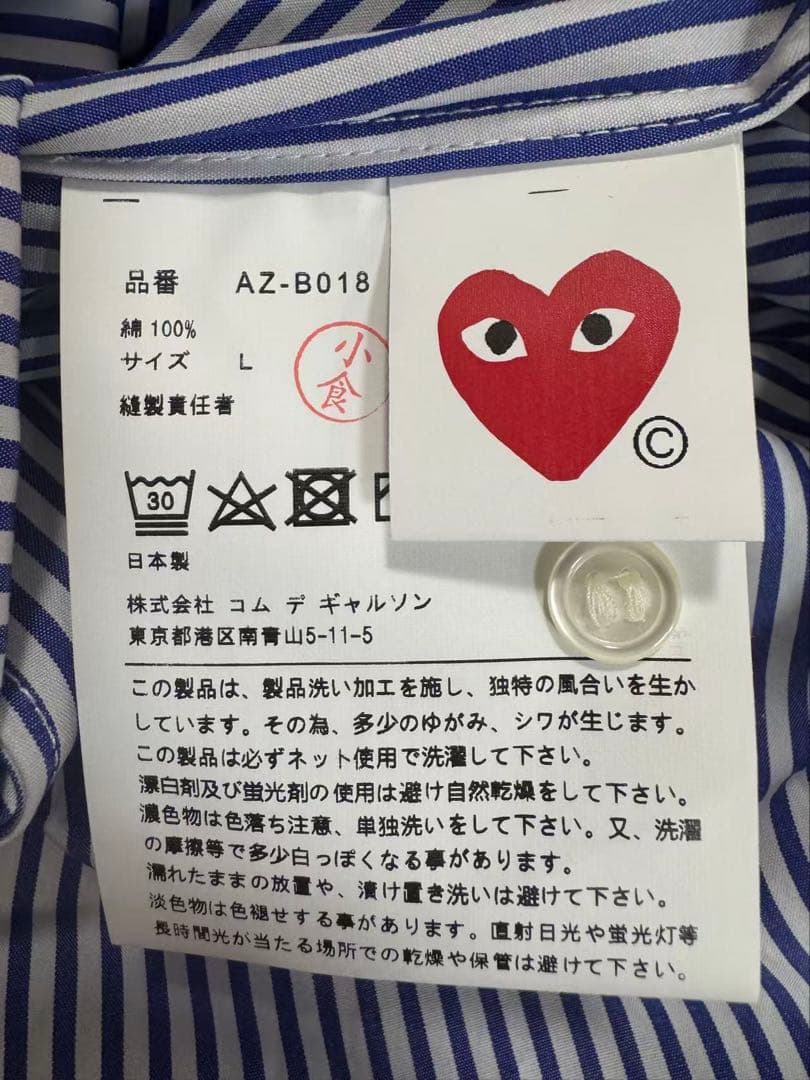 品番 AZ-B018
綿 100%
サイズ L
小
食
縫製責任者
30
日本製
株式会社 コム デ ギャルソン
東京都港区南青山5-11-5
この製品は、製品洗い加工を施し、独特の風合いを生か
しています。その為、多少のゆがみ、シワが生じます。
この製品は必ずネット使用で洗濯して下さい。
漂白剤及び蛍光剤の使用は避け自然乾燥をして下さい。
濃色物は色落ち注意、単独洗いをして下さい。又、洗濯
の摩擦等で多少白っぽくなる事があります。
濡れたままの放置や、漬け置き洗いは避けて下さい。
淡色物は色褪せする事があります。直射日光や蛍光灯等
長時間光が当たる場所での乾燥や保管は避けて下さい。
©